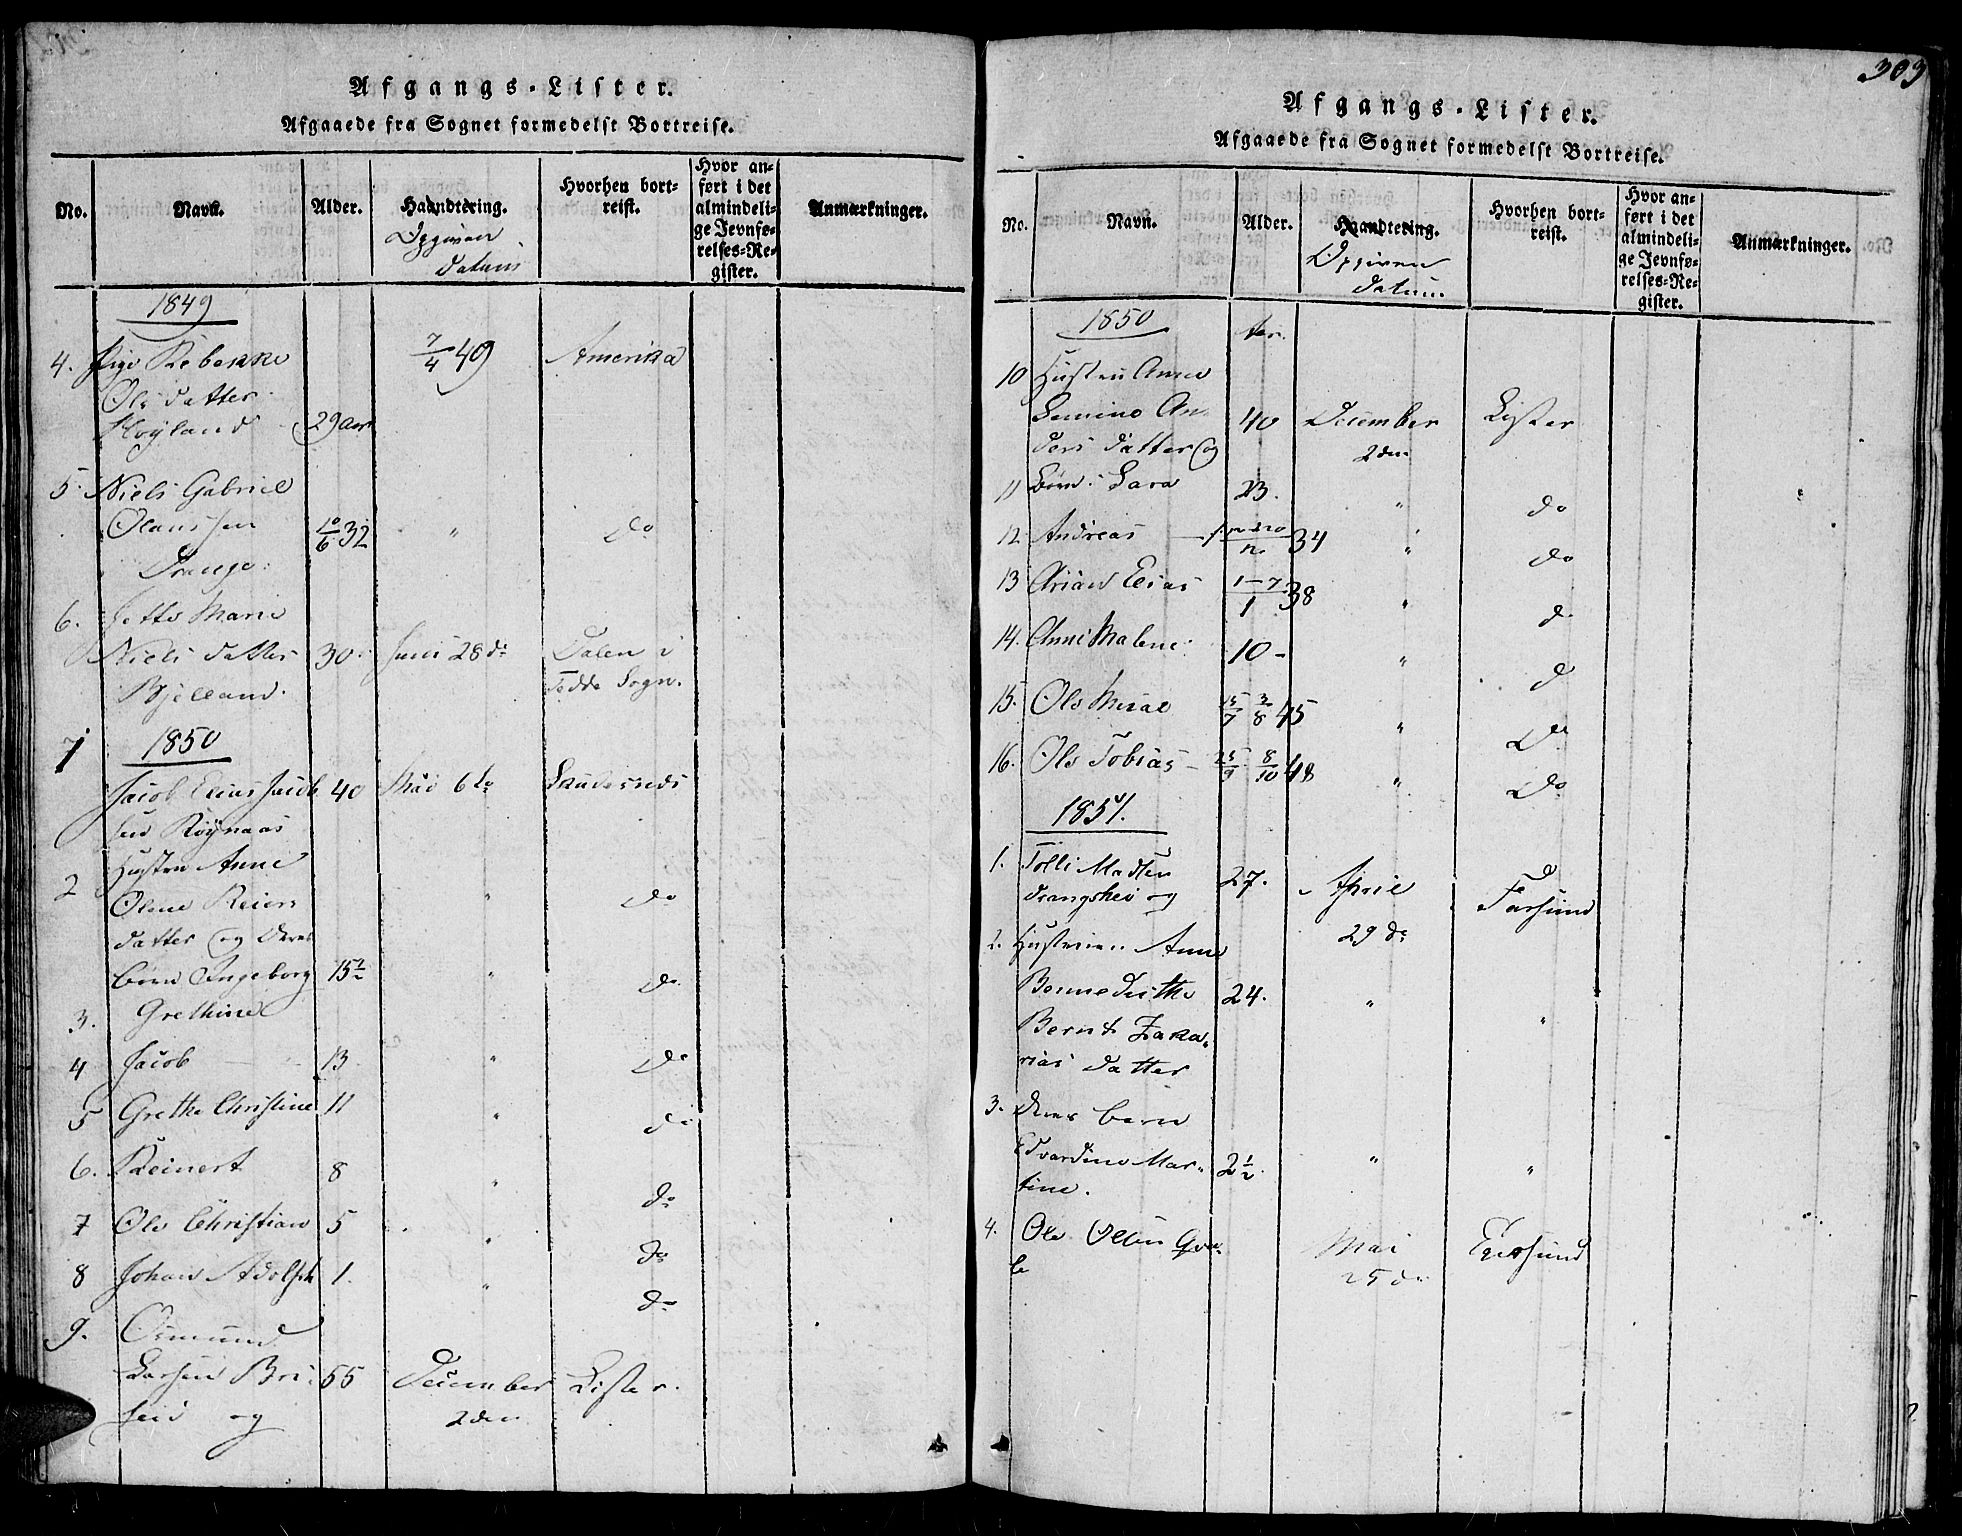 Afgangs-Lister.
Afgaaede fra Sognet formedelst Bortreise.
No. Navn. Alder. Haandtering. Hvorhen bortreist. Hvor anført i det almindelige Jevnførelses-Register. Anmærkninger.
Opgiven
Datum
1849
4. Pige Rebekke 7/4 49 Amerika
Ols datter
Høyland 29 aar
5. Niels Gabriel
Olaus sen 10/6 32 " do
Drange.
6. Jette Marie
Niels datter 30. Juni 28 d: Dalen i
Bjelland. Fedde Sogn.
1850
1 Jacob Elias Jacob 40 Mai 6te
sen Røynaas
2 Hustru Anne
Olene Reiers " do
datter og deres
børn Ingeborg 15½ " do
3. Grethine
4 Jacob 13 " do
5 Grethe Christine 11 " do
6. Reinert 8 " do
7 Ole Christian 5 " do
8 Johan Adolph 1. " do
9. Osmund
Larsen Bri- 55 December Lister.
seid og 2den
303
Afgangs-Lister.
Afgaaede fra Sognet formedelst Bortreise.
No. Navn. Alder. Haandtering. Hvorhen bortreist. Hvor anført i det almindelige Jevnførelses-Register. Anmærkninger.
Opgiven
Datum
1850
10 Hustru Anne
An- 40 December Lister
ders datter og 2den
11 Børn: Sara 23. " do
12 Andreas 34 " do
13 Elias 1-7/1 38 " d
14. Anne Malene 10 - " d
15. Ole 45 " do
16. Ole Tobias - 25/9 8/10 48 " do
1851.
1. Tolli Madsen 27. April Farsund
Drangshei og 29 d:
2. Hustruen Anne
24. " "
Bernt Zaka-
rias datter
3. deres barn
Edvardine Mar- 2½ " "
tine.
4. Ole Mai Egersund
25 d: